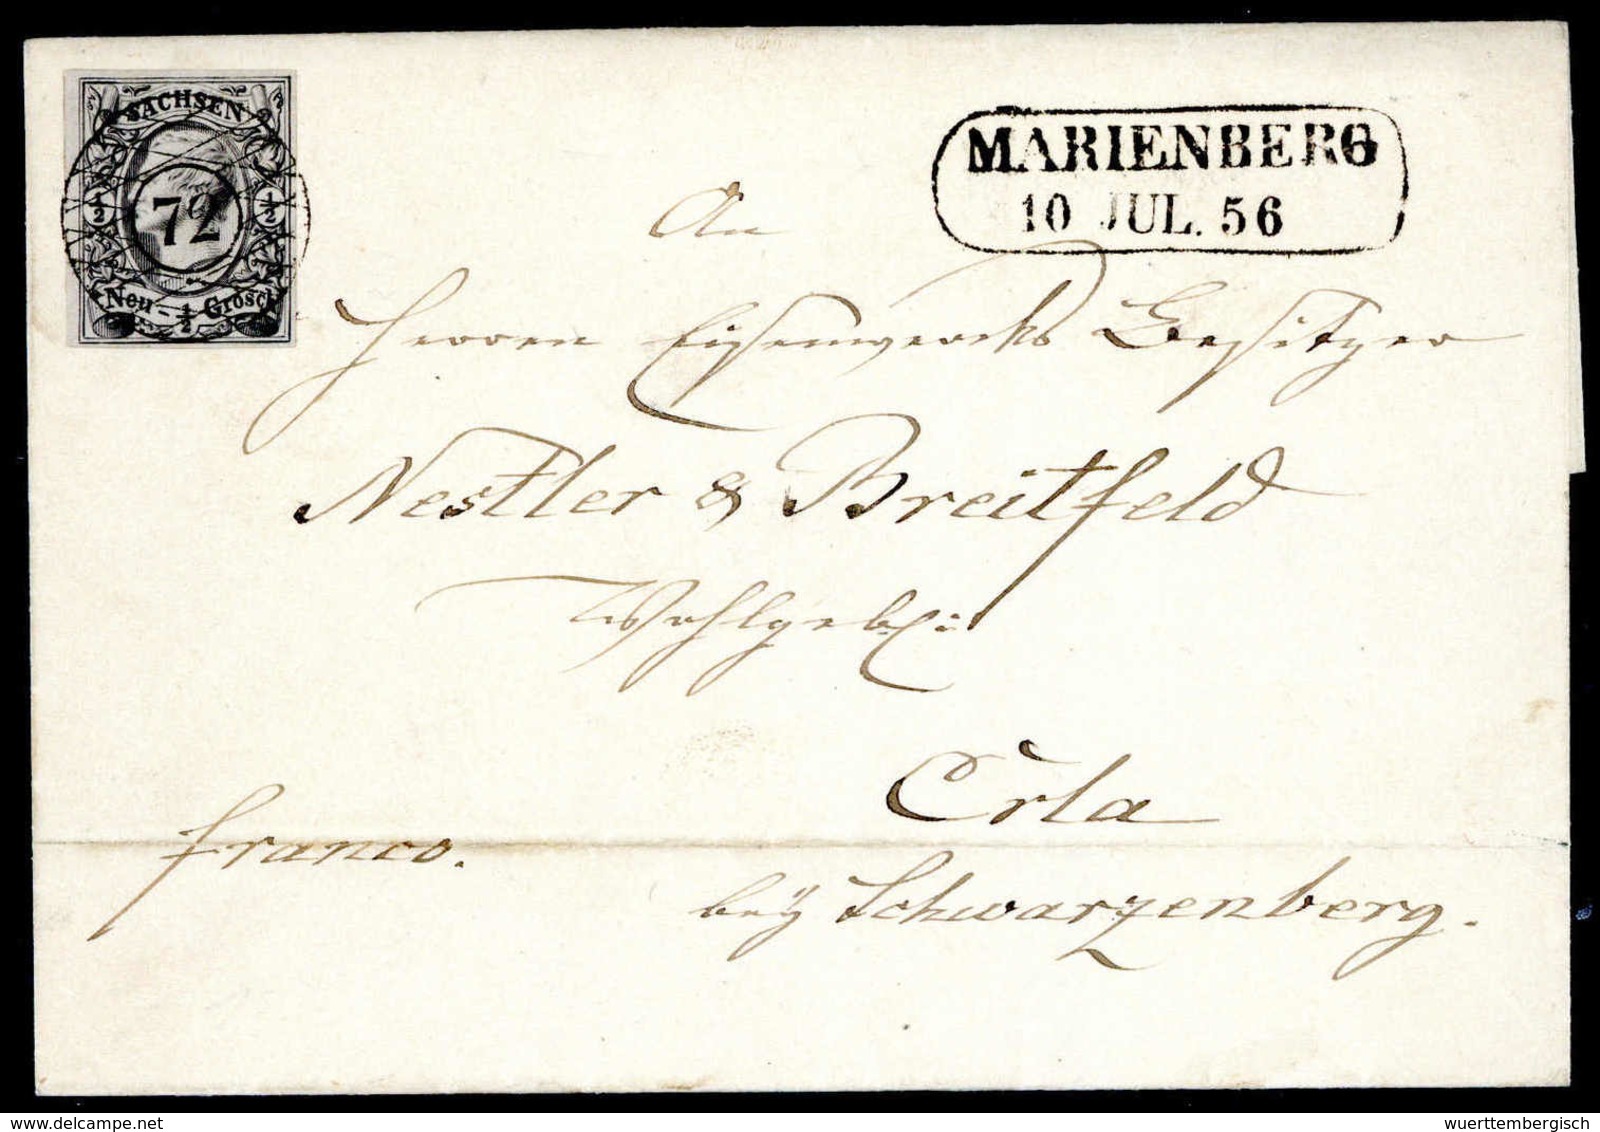 SACHSEN
½ 72 ½
Neu-½ Grosch
MARIENBERG
10 JUL. 56
An
Herren Eisenwercks Besitzer
Nestler & Breitfeld
Wohlgeb:
Erla
franco.
bey Schwarzenberg.
wuerttembergisch